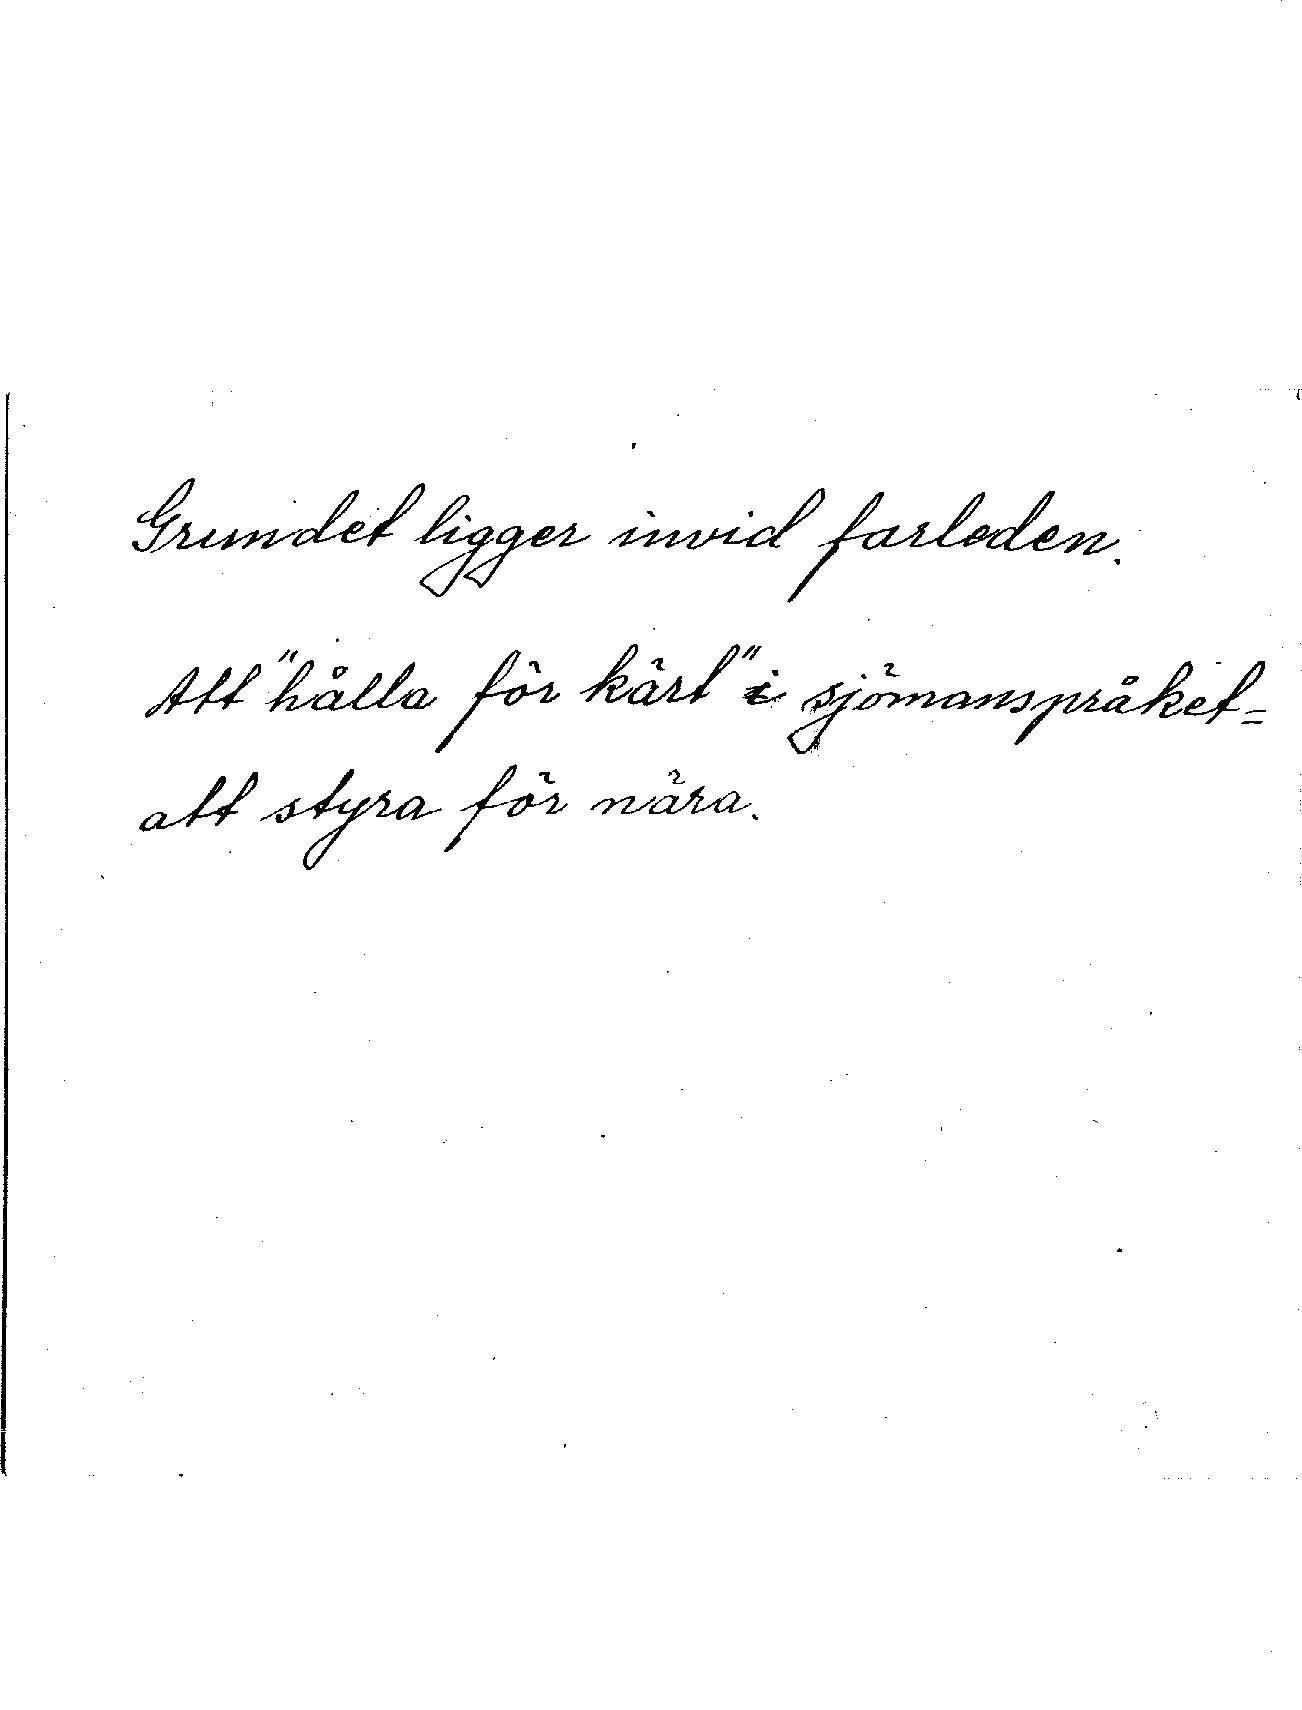 Grundet ligger invid farleden.
Att "hålla för kärt" i sjömanspråket =
att styra för nära.